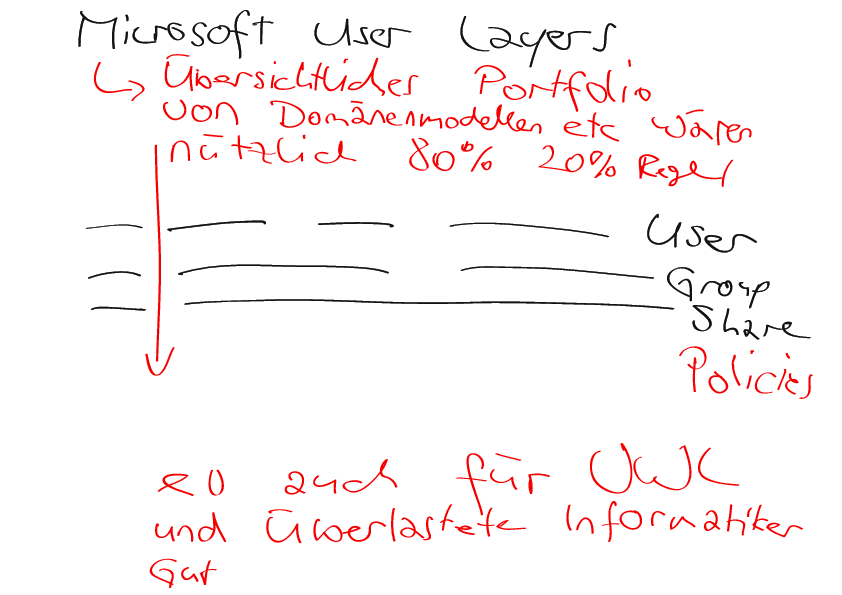 Microsoft User Layers
↳ Übersichtlicher Portfolio
von Domänenmodellen etc wären
nützlich 80% 20% Regel
User
Group
Share
Policies
so auch für UWL
und Überlastete Informatiker
Gut